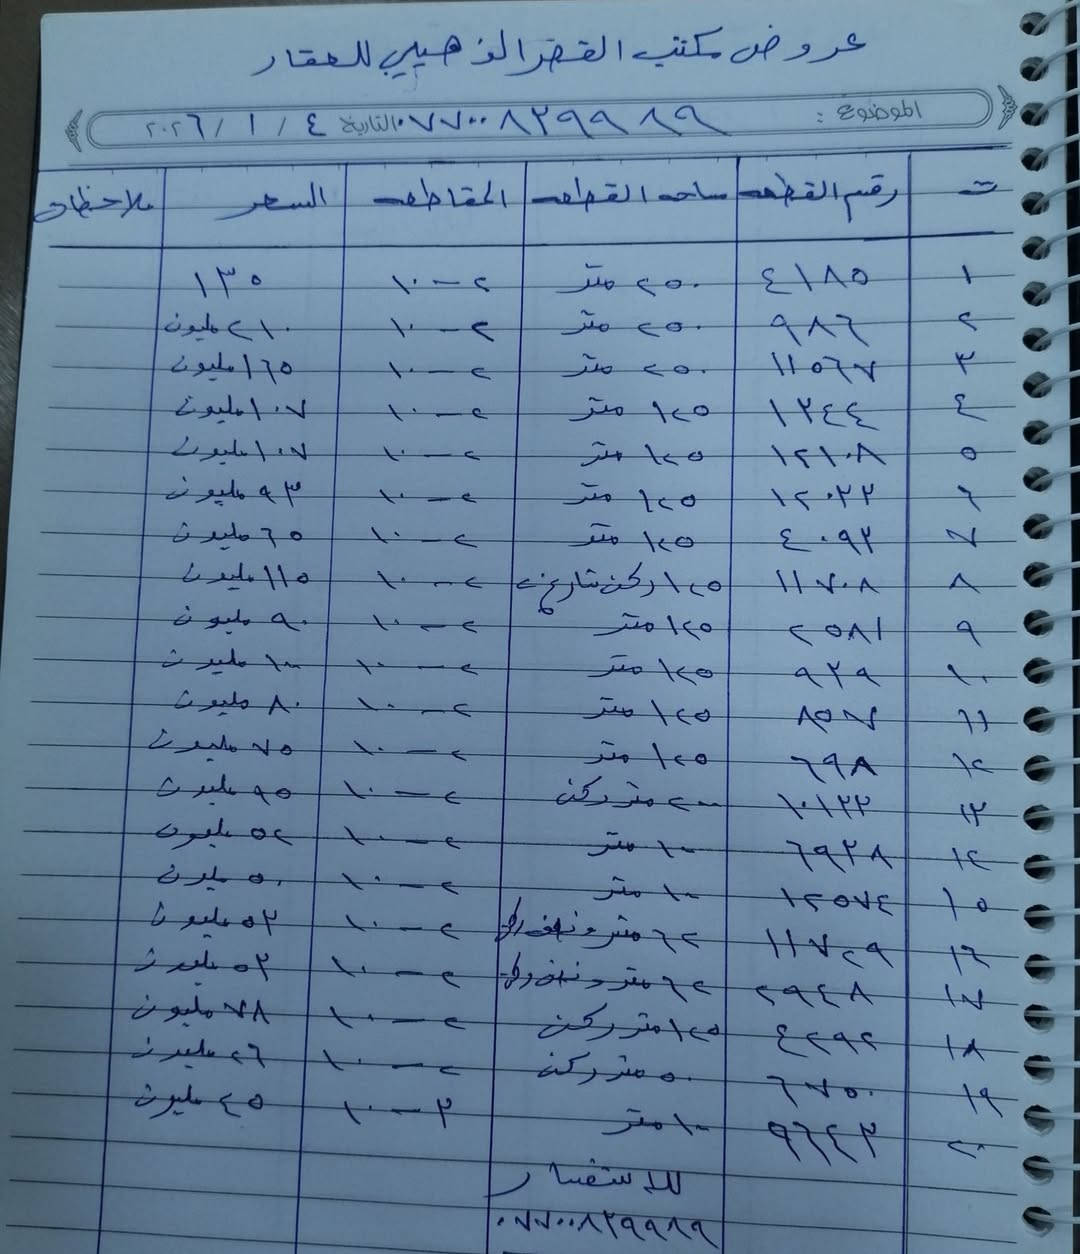 عروض مكتب القصر الذهبي للعقار
الموضوع : ٠٧٧٠٠٨٢٩٩٨٩ التاريخ ٤ / ١ / ٢٠٢٦
ت رقم القطعه مساحه القطعه المقاطعه السعر ملاحظات
١ ٤١٨٥ ٢٥٠ متر ٢ – ١٠ ١٣٥
٢ ٩٨٦ ٢٥٠ متر ٢ – ١٠ ٢١٠ مليون
٣ ١١٥٦٧ ٢٥٠ متر ٢ – ١٠ ١٦٥ مليون
٤ ١٢٤٤ ١٢٥ متر ٢ – ١٠ ١٠٧ مليون
٥ ١٢١٠٨ ١٢٥ متر ٢ – ١٠ ١٠٧ مليون
٦ ١٢٠٢٢ ١٢٥ متر ٢ – ١٠ ٩٣ مليون
٧ ٤٠٩٢ ١٢٥ متر ٢ – ١٠ ٦٥ مليون
٨ ١١٧٠٨ ١٢٥ ركن شارع ٢ – ١٠ ١١٥ مليون
٩ ٢٥٨١ ١٢٥ متر ٢ – ١٠ ٩٠ مليون
١٠ ٩٢٩ ١٢٥ متر ٢ – ١٠ ١٠٠ مليون
١١ ٨٥٧ ١٢٥ متر ٢ – ١٠ ٨٠ مليون
١٢ ٦٩٨ ١٢٥ متر ٢ – ١٠ ٧٥ مليون
١٣ ١٠١٢٢ ٢٠٠ متر ركن ٢ – ١٠ ٩٥ مليون
١٤ ٦٩٢٨ ١٠٠ متر ٢ – ١٠ ٥٢ مليون
١٥ ١٢٥٧٤ ١٠٠ متر ٢ – ١٠ ٥٠ مليون
١٦ ١١٧٢٩ ٦٢ متر ونصف ركن ٢ – ١٠ ٥٣ مليون
١٧ ٢٩٤٨ ٦٢ متر ونصف ركن ٢ – ١٠ ٥٣ مليون
١٨ ٤٢٩٢ ١٢٥ متر ركن ٢ – ١٠ ٧٨ مليون
١٩ ٦٧٥٠ ٥٠ متر ركن ٢ – ١٠ ٢٦ مليون
٢٠ ٩٦٤٣ ١٠٠ متر ٣ – ١٠ ٤٥ مليون
للاستفسار
٠٧٧٠٠٨٢٩٩٨٩